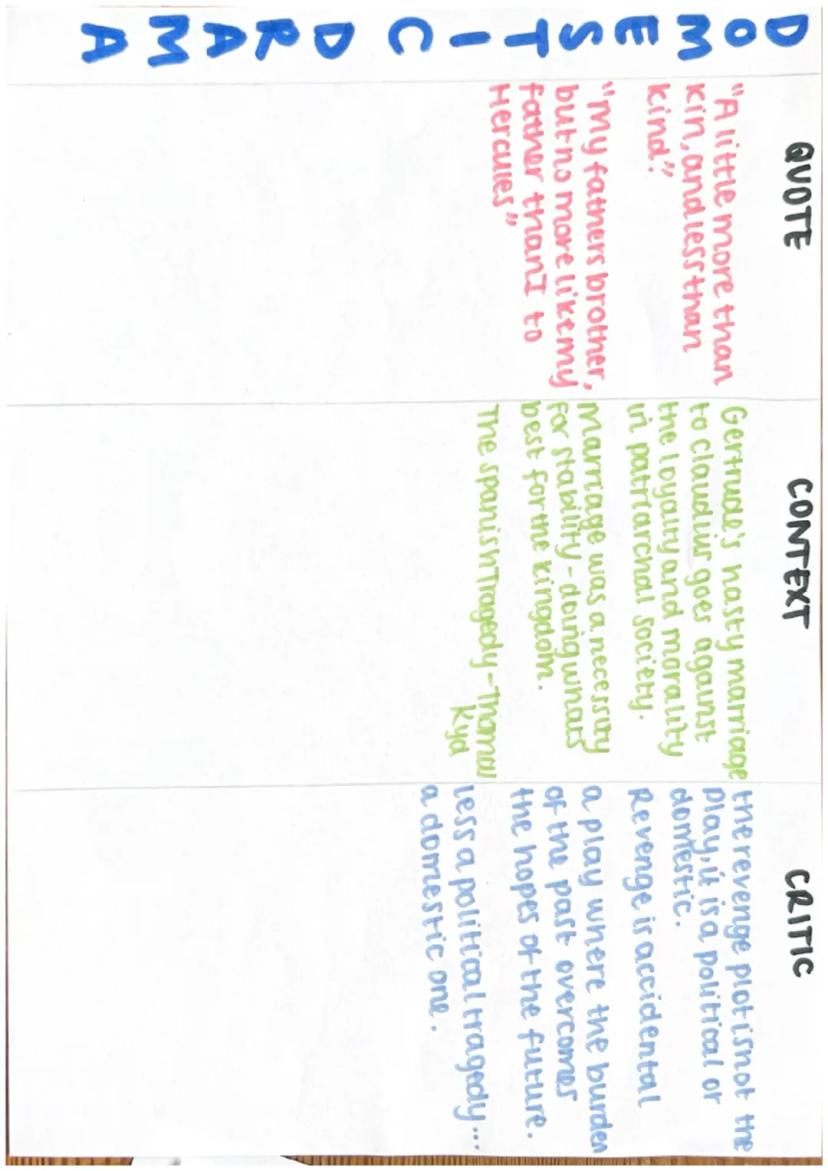 DOMESTIC DRAMA
QUOTE
"A little more than
kin, and less than
kind".
"My fathers brother,
but no more like my
father than I to
Hercules"
CONTEXT
Gertrude's hasty marriage
to claudius goes against
the loyalty and morality
in patriarchal society.
Marriage was a necessity
for stability - doing whats
best for the kingdom.
The Spanish Tragedy - Thomas
Kyd
CRITIC
the revenge plot is not the
play, it is a political or
domestic.
Revenge is accidental
a play where the burden
of the past overcomes
the hopes of the future.
less a political tragedy...
a domestic one.